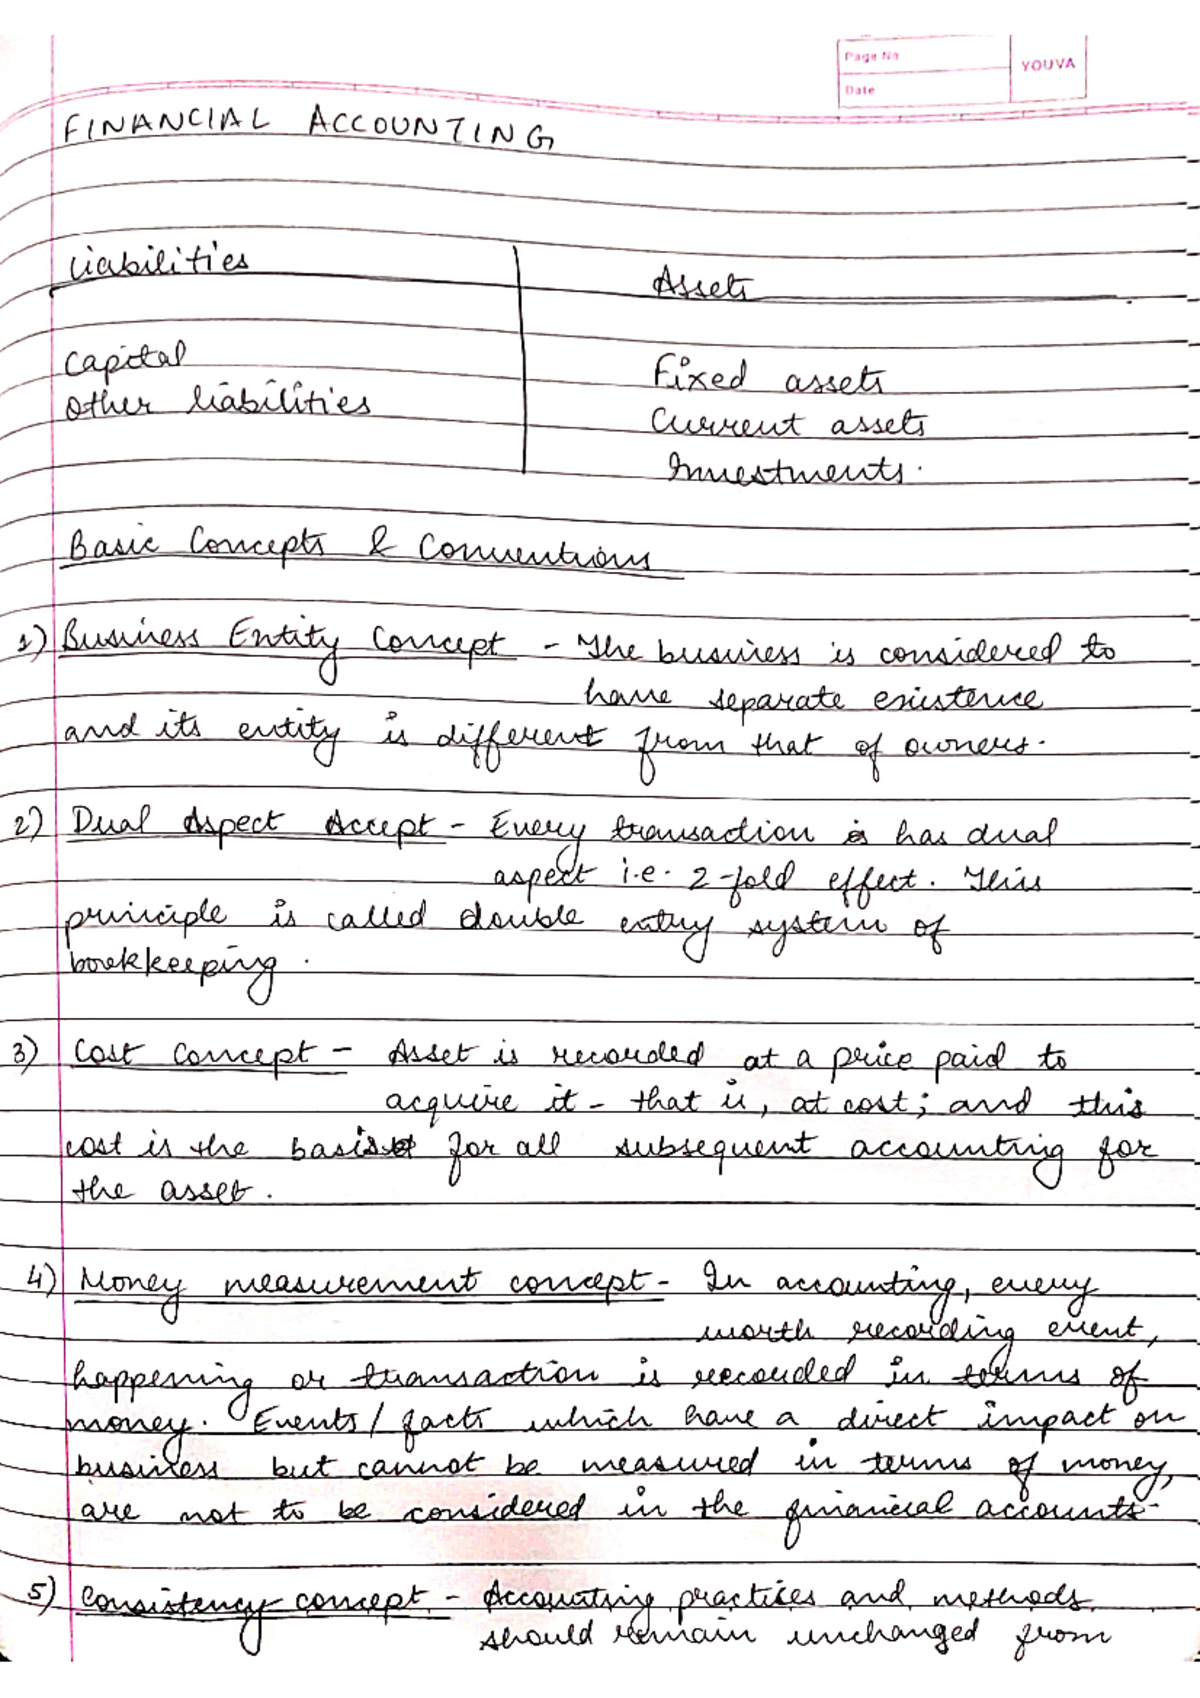 Page No
Date
YOUVA
FINANCIAL ACCOUNTING
Liabilities
Assets
Capital
Other liabilities
Fixed assets
Current assets
Investments.
Basic Concepts & Conventions
1) Business Entity Concept - The business is considered to
have separate existence
and its entity is different from that of owners.
2) Dual Aspect Accept - Every transaction has dual
aspect i.e. 2-fold effect. This
principle is called double entry system of
bookkeeping.
3) Cost Concept - Asset is recorded at a price paid to
acquire it - that is, at cost; and this
cost is the basis for all subsequent accounting for
the asset.
4) Money measurement concept - In accounting, every
worth recording event,
happening or transaction is recorded in terms of
money. Events/facts which have a direct impact on
business but cannot be measured in terms of money,
are not to be considered in the financial accounts.
5) Consistency concept - Accounting practices and methods
should remain unchanged from